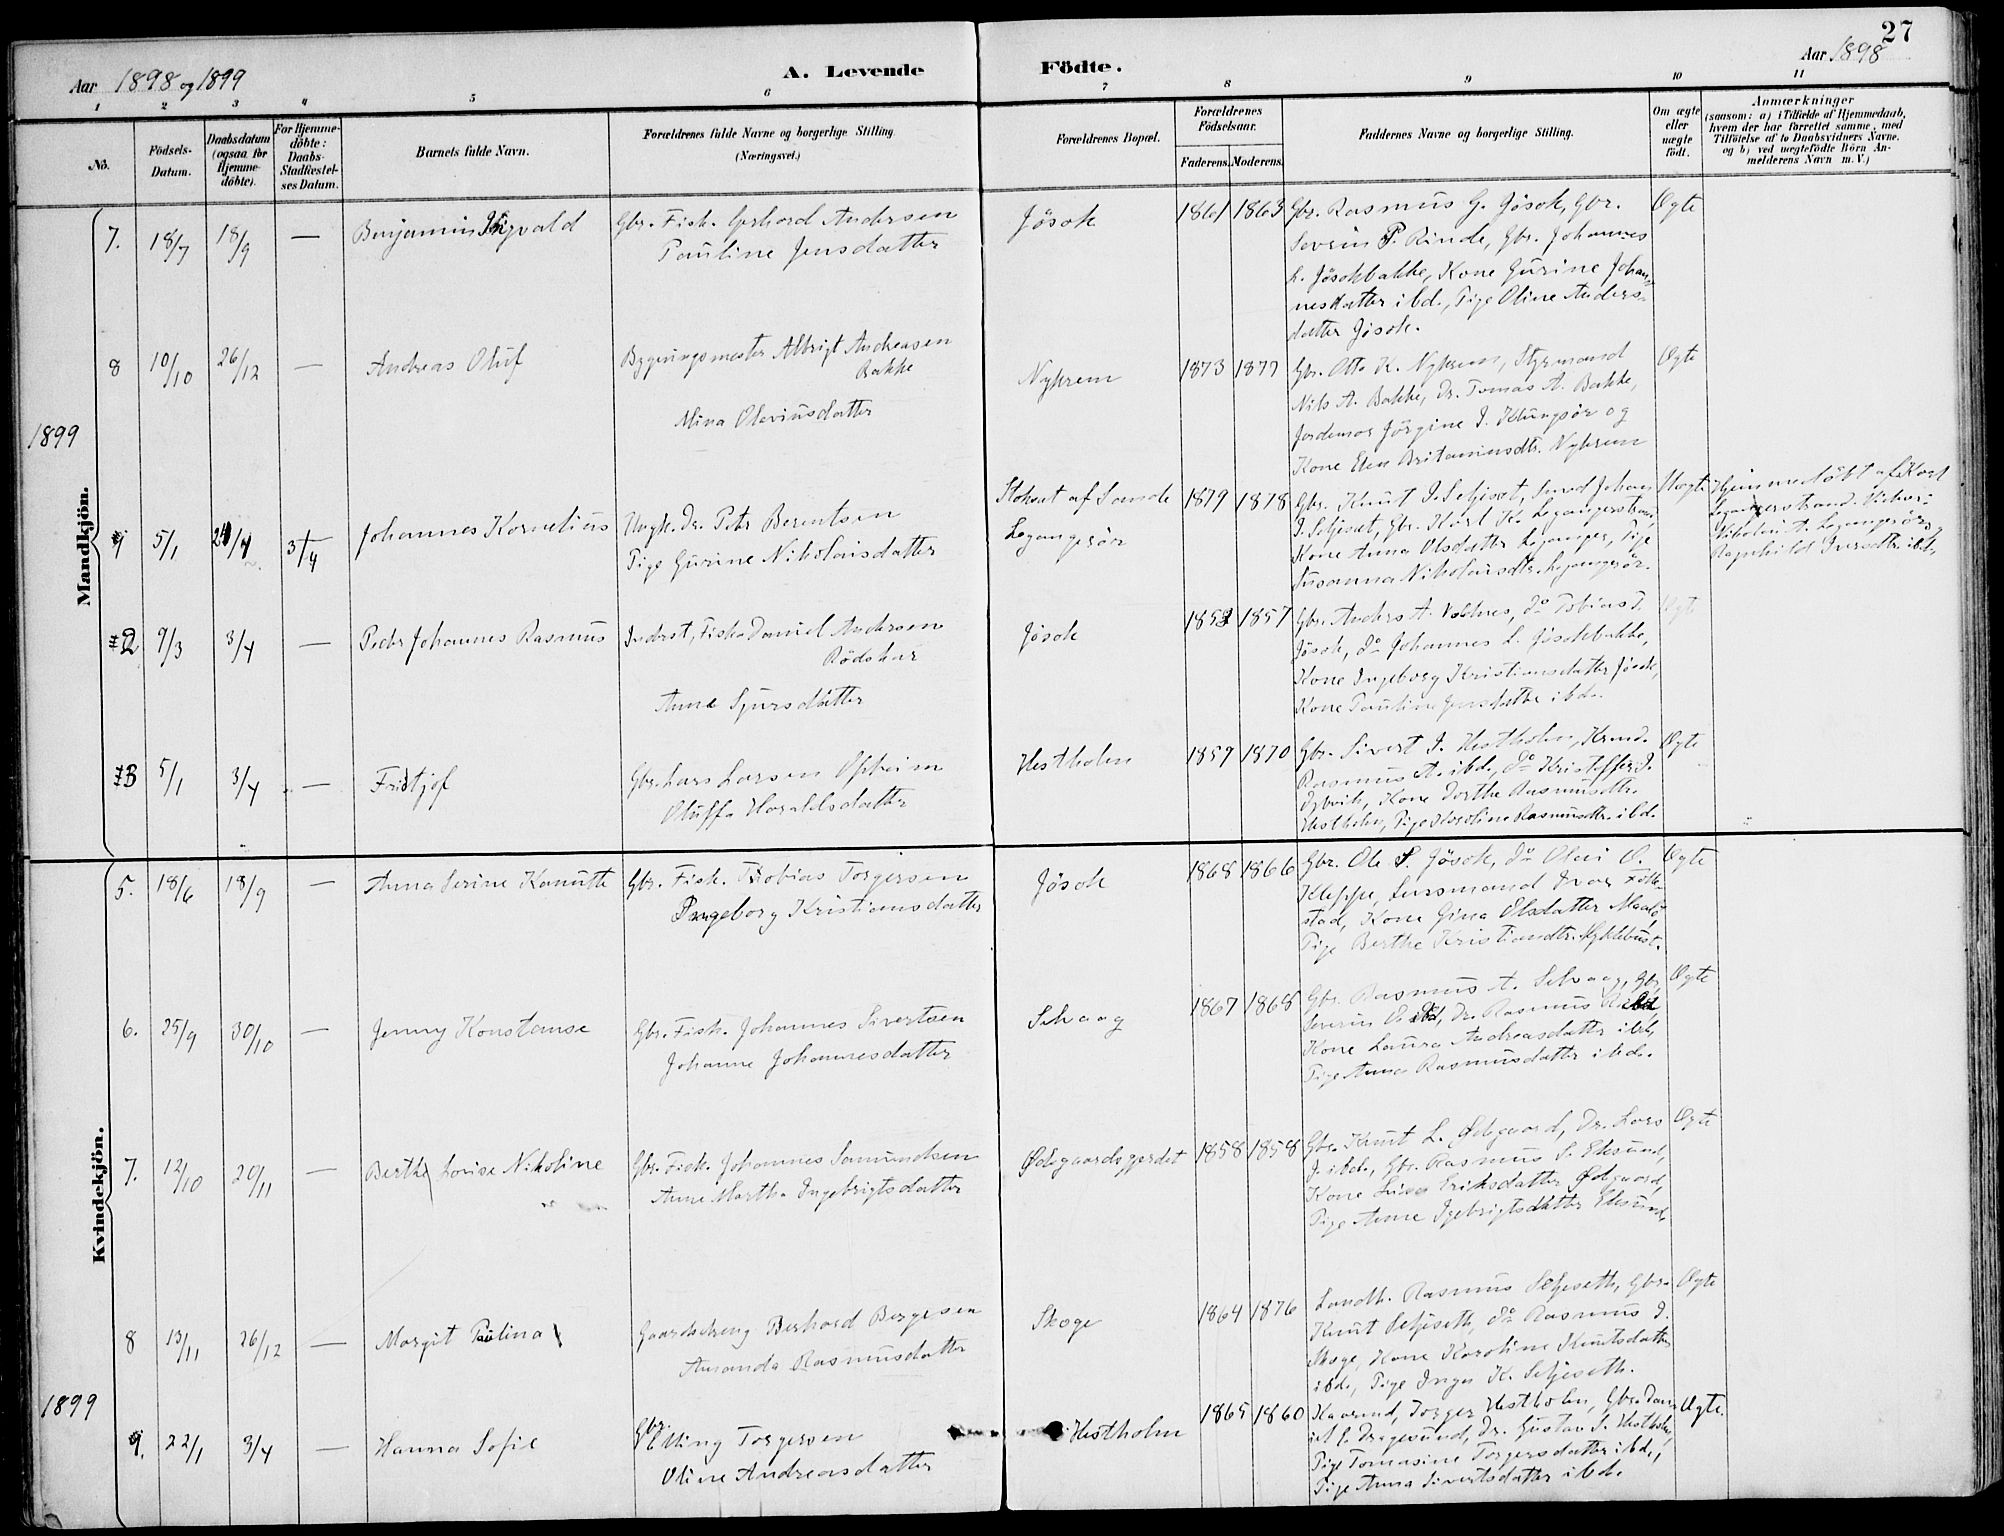 27
Aar 1898 og 1899
A. Levende
Födte.
Aar 1898
1 2 3 4 5 6 7 8 9 10 11
No.
Födsels-
Datum.
Daabsdatum
(ogsaa for
Hjemme-
döbte).
For Hjemme-
döbte:
Daabs-
Stadfæstel-
ses Datum.
Barnets fulde Navn.
Forældrenes fulde Navne og borgerlige Stilling.
(Næringsvei.)
Forældrenes Bopæl.
Forældrenes
Födselsaar.
Faderens. Moderens.
Faddernes Navne og borgerlige Stilling.
Om ægte
eller
uægte
födt.
Anmærkninger
(saasom: a) i Tilfælde af Hjemmedaab,
hvem der har forrettet samme, med
Tilföielse af to Daabsvidners Navne.
og b) ved uægtefödte Börn An-
melderens Navn m. V.)
Mandkjön.
7. 18/7 18/9 — Benjamin Ingvald
Gbr. Fisk. Gerhard Andersen
Pauline Jensdatter
Jösok
1861 1863
Gbr. Rasmus G. Jösok, Gbr.
Severin P. Rinde, Gbr. Johannes
L. Jösokbakke, Kone Gurine Johan-
nesdatter ibd., Pige Oline Anders-
datter Jösok.
Ægte
8 10/10 26/12 — Andreas Oluf
Bygningsmester Albrigt Andreasen
Bakke
Mina Oleviusdatter
Nykrem
1873 1877
Gbr. Otto K. Nykrem, Styrmand
Nils A. Bakke, Dr. Tomas A. Bakke,
Jordemor Jörgine I. Klungsör og
Kone Elen Britaniusdtr. Nykrem
Ægte
1899
1 5/1 24/4 3/4 Johannes Kornelius
Ungk. Dr. Petr Berentsen
Pige Gurine Nikolaisdatter
Stoksut af Sande
Legangerör
1879 1878
Gbr. Knut I. Seljeset, Smed Johan
I. Seljeset, Gbr. Karl K. Legangerstrand,
Kone Anna Olsdatter Leganger, Pige
Susanna Nikolaisdtr. Legangerör.
Uægte
Hjemmedöbt af Karl
Legangerstrand. Vidner:
Nikolai A. Legangerör og
Ragnhild Iversdtr. ibd.
2 9/3 3/4 — Peder Johannes Rasmus
Inderst, Fisk. Daniel Andersen
Rödskar
Anne Sjursdatter
Jösok
1853 1857
Gbr. Anders A. Voldnes, do Tobias T.
Jösok, do Johannes L. Jösokbakke,
Kone Ingeborg Kristiansdatter Jösok,
Kone Pauline Jensdatter ibd.
Ægte
3 5/1 3/4 — Fridtjof
Gbr. Lars Larsen Opheim
Oluffa Haraldsdatter
Hestholm
1859 1870
Gbr. Sivert I. Hestholm, Kaarmd.
Rasmus A. ibd., do Kristoffer I.
Kone Dorthe Rasmusdtr.
Hestholm, Pige Karoline Rasmusdtr. ibd.
Ægte
Kvindekjön.
5. 18/6 18/9 — Anna Serine Kanutte
Gbr. Fisk. Tobias Torgersen
Ingeborg Kristiansdatter
Jösok
1868 1866
Gbr. Ole S. Jösok, do Olai O.
Kleppe, Lensmand Ivar Folke-
stad, Kone Gina Olsdatter Maalö,
Pige Berthe Kristiandtr. Myklebust.
Ægte
6. 25/9 30/10 — Jenny Konstanse
Gbr. Fisk. Johannes Sivertsen
Johanne Johannesdatter
Selvaag
1867 1868
Gbr. Rasmus A. Selvaag, Gbr.
Severin O. ibd, Dr. Rasmus R. ibd
Kone Laura Andreasdatter ibd,
Pige Anna Rasmusdatter ibd.
Ægte
7. 12/10 20/11 — Berthe Lovise Nikoline
Gbr. Fisk. Johannes Samundsen
Anne Martha Ingebrigtsdatter
Ødegaardsgjerdet
1858 1858
Gbr. Knut L. Ødegaard, Dr. Lars
J. ibd., Gbr. Rasmus S. Eksund,
Kone Lina Eriksdatter Ødegaard,
Pige Anne Igebrigtsdatter Eksund.
Ægte
8 13/11 26/12 — Margit Paulina
Gaardsdreng Berhard Bergesen
Amanda Rasmusdatter
Skoge
1864 1876
Landh. Rasmus Seljeseth, Gbr.
Knut Seljeseth, do Rasmus I.
Skoge, Kone Karoline Knutsdatter
ibd., Pige Inger K. Seljeseth.
Ægte
1899
1. 22/1 3/4 — Hanna Sofie
Gbr. Elling Torgersen
Oline Andreasdatter
Hestholm
1865 1860
Kaarmd. Torger Hestholm, Gbr. Dan-
iel L. Dragesund, Dr. Gustav S. Hestholm,
Pige Tomasine Torgersdatter ibd.,
Pige Anna Sivertsdatter ibd.
Ægte.